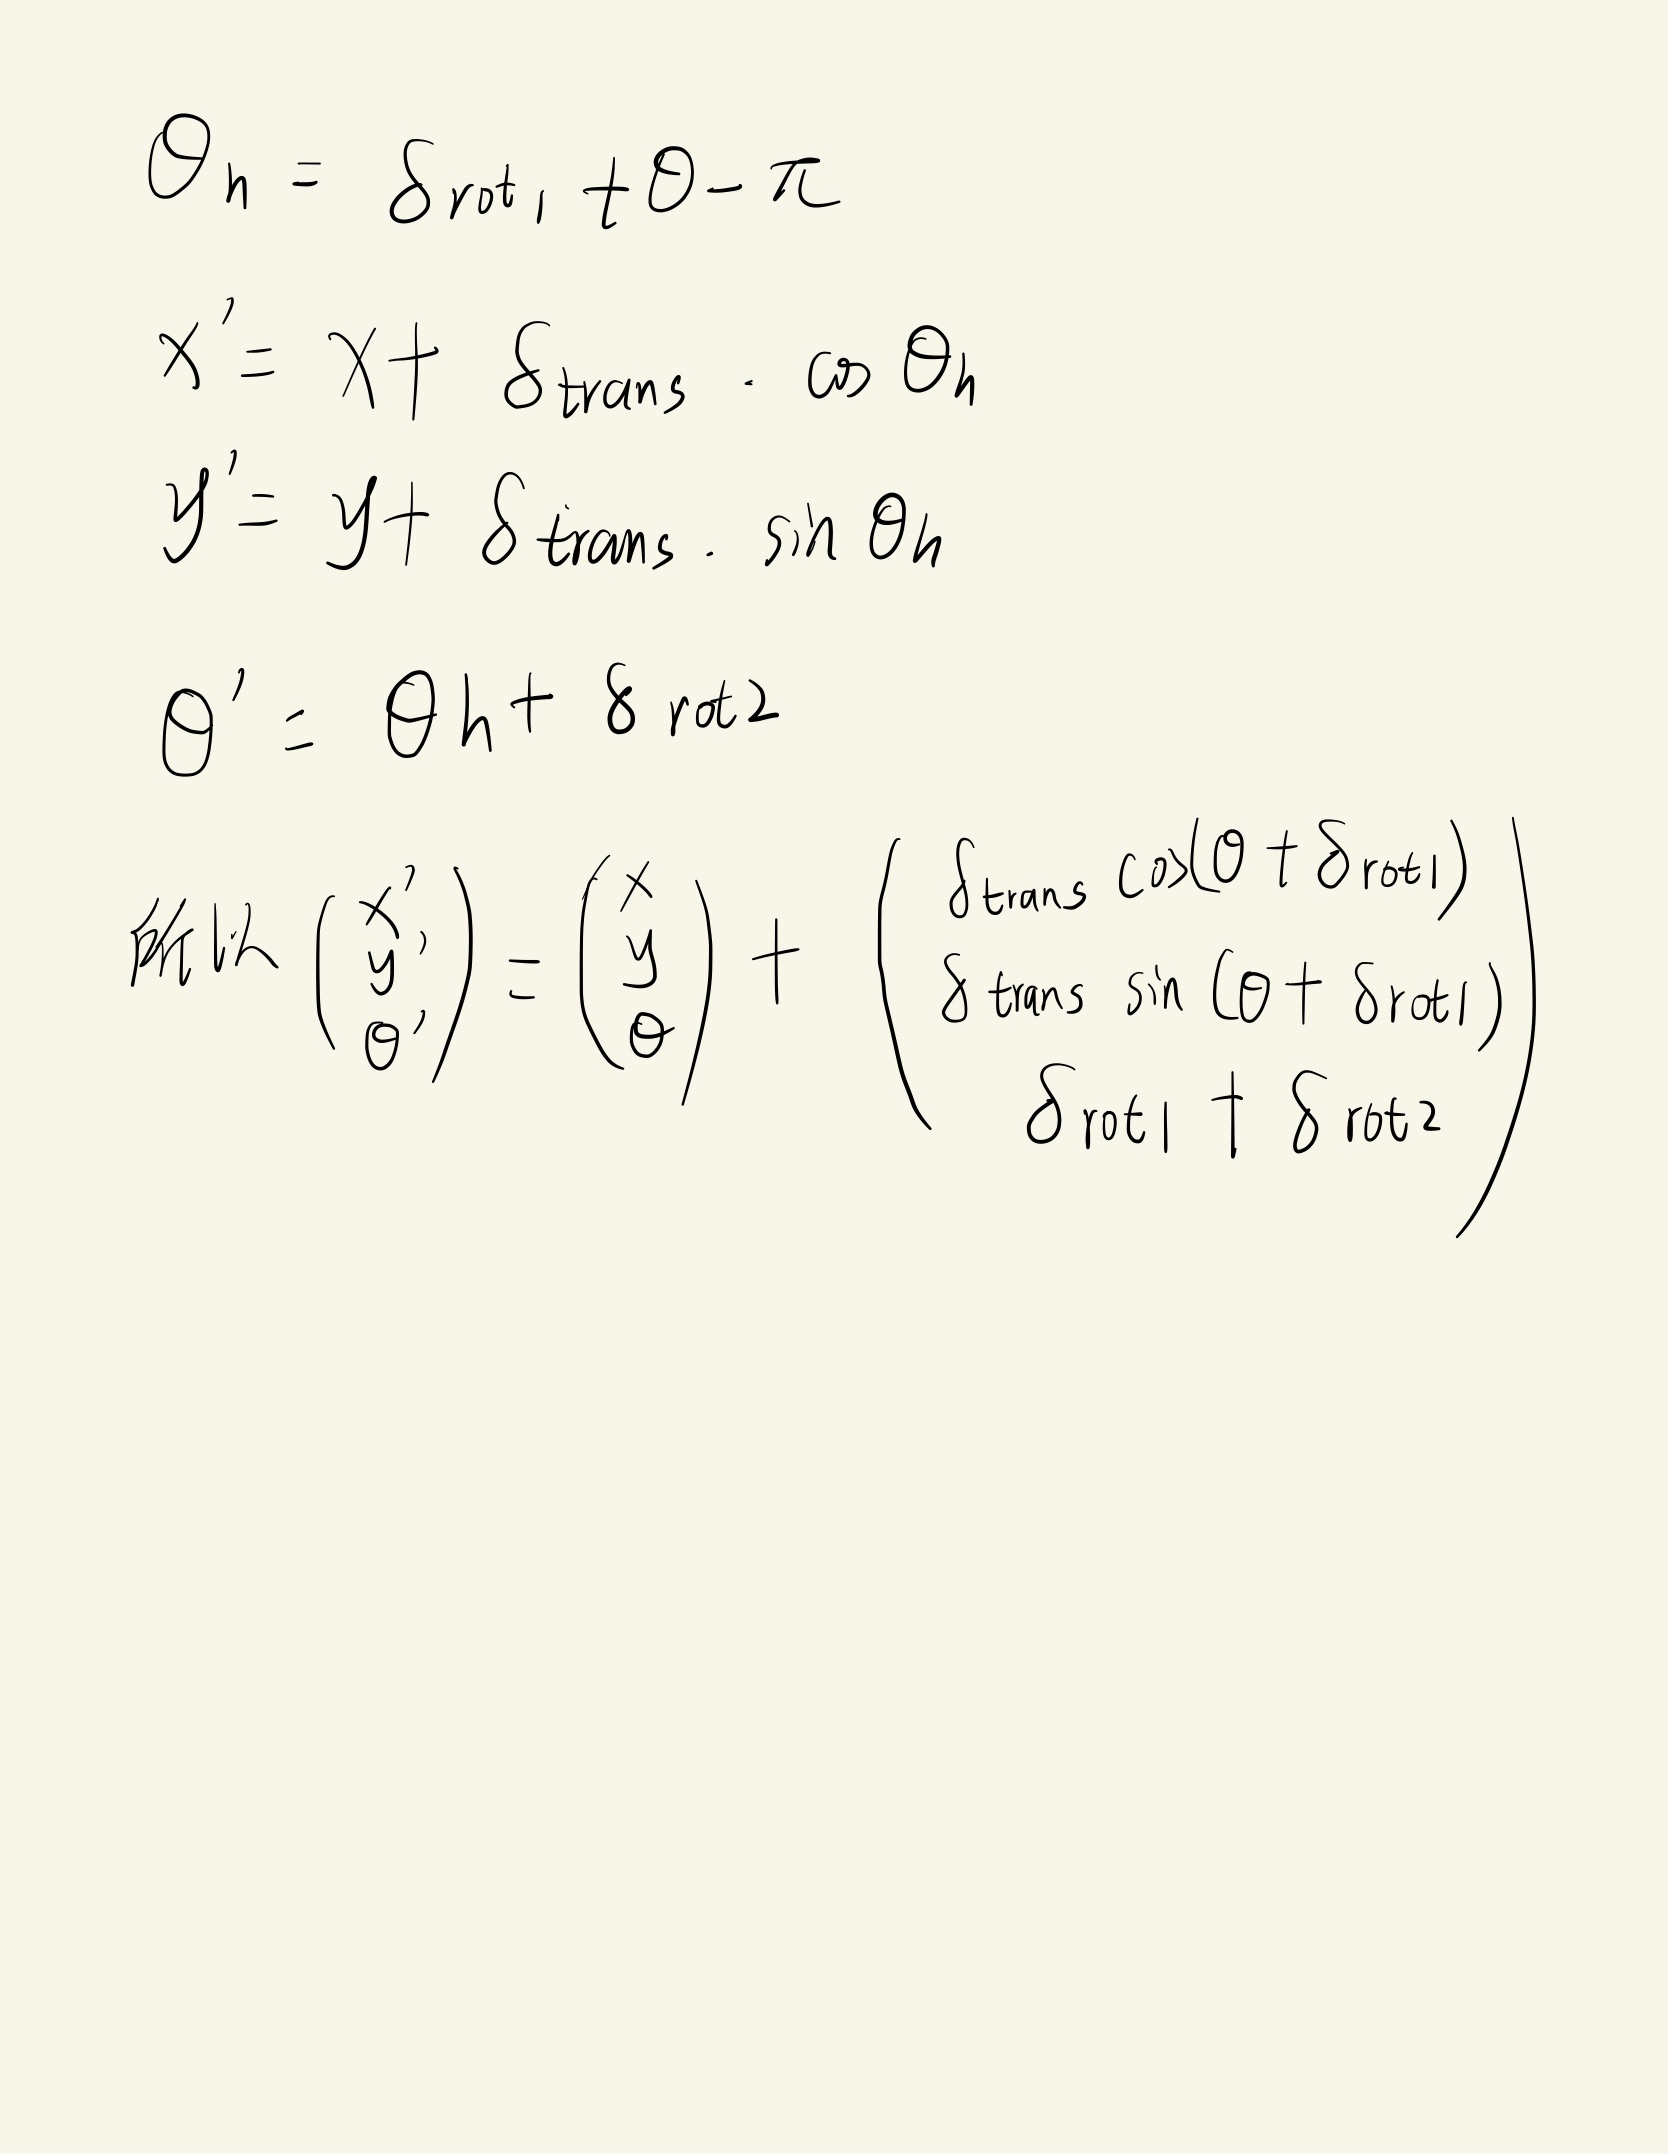 θh = δrot1 + θ - π
x' = x + δtrans · cos θh
y' = y + δtrans · sin θh
θ' = θh + δrot2
所以 (x' y' θ') = (x y θ) + (δtrans cos(θ + δrot1) δtrans sin(θ + δrot1) δrot1 + δrot2)